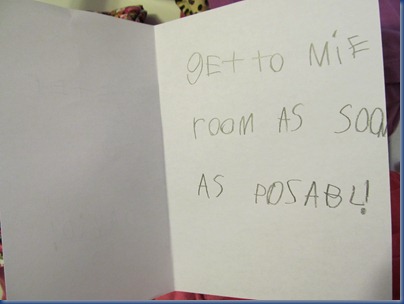 gET TO MiE
room AS SOON
AS POSABL!